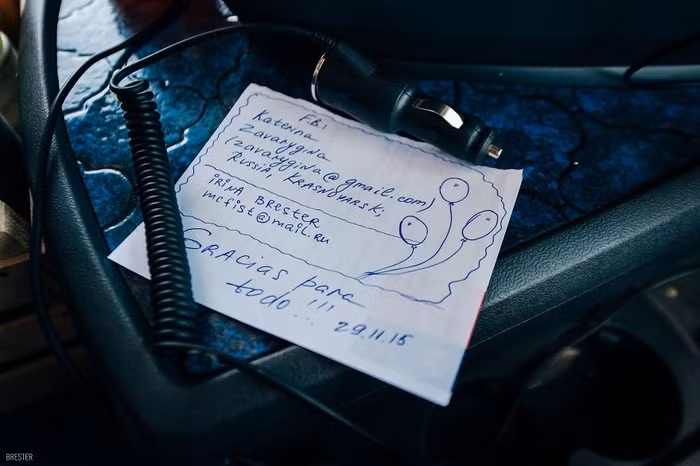 FB:
Katerina
Zavarygina
(zavarygina@gmail.com)
RUSSIA, KRASNOYARSK;
IRINA BRESTER
mcfist@mail.ru
GRACIAS para
todo!!!
29.11.15
BRESTER